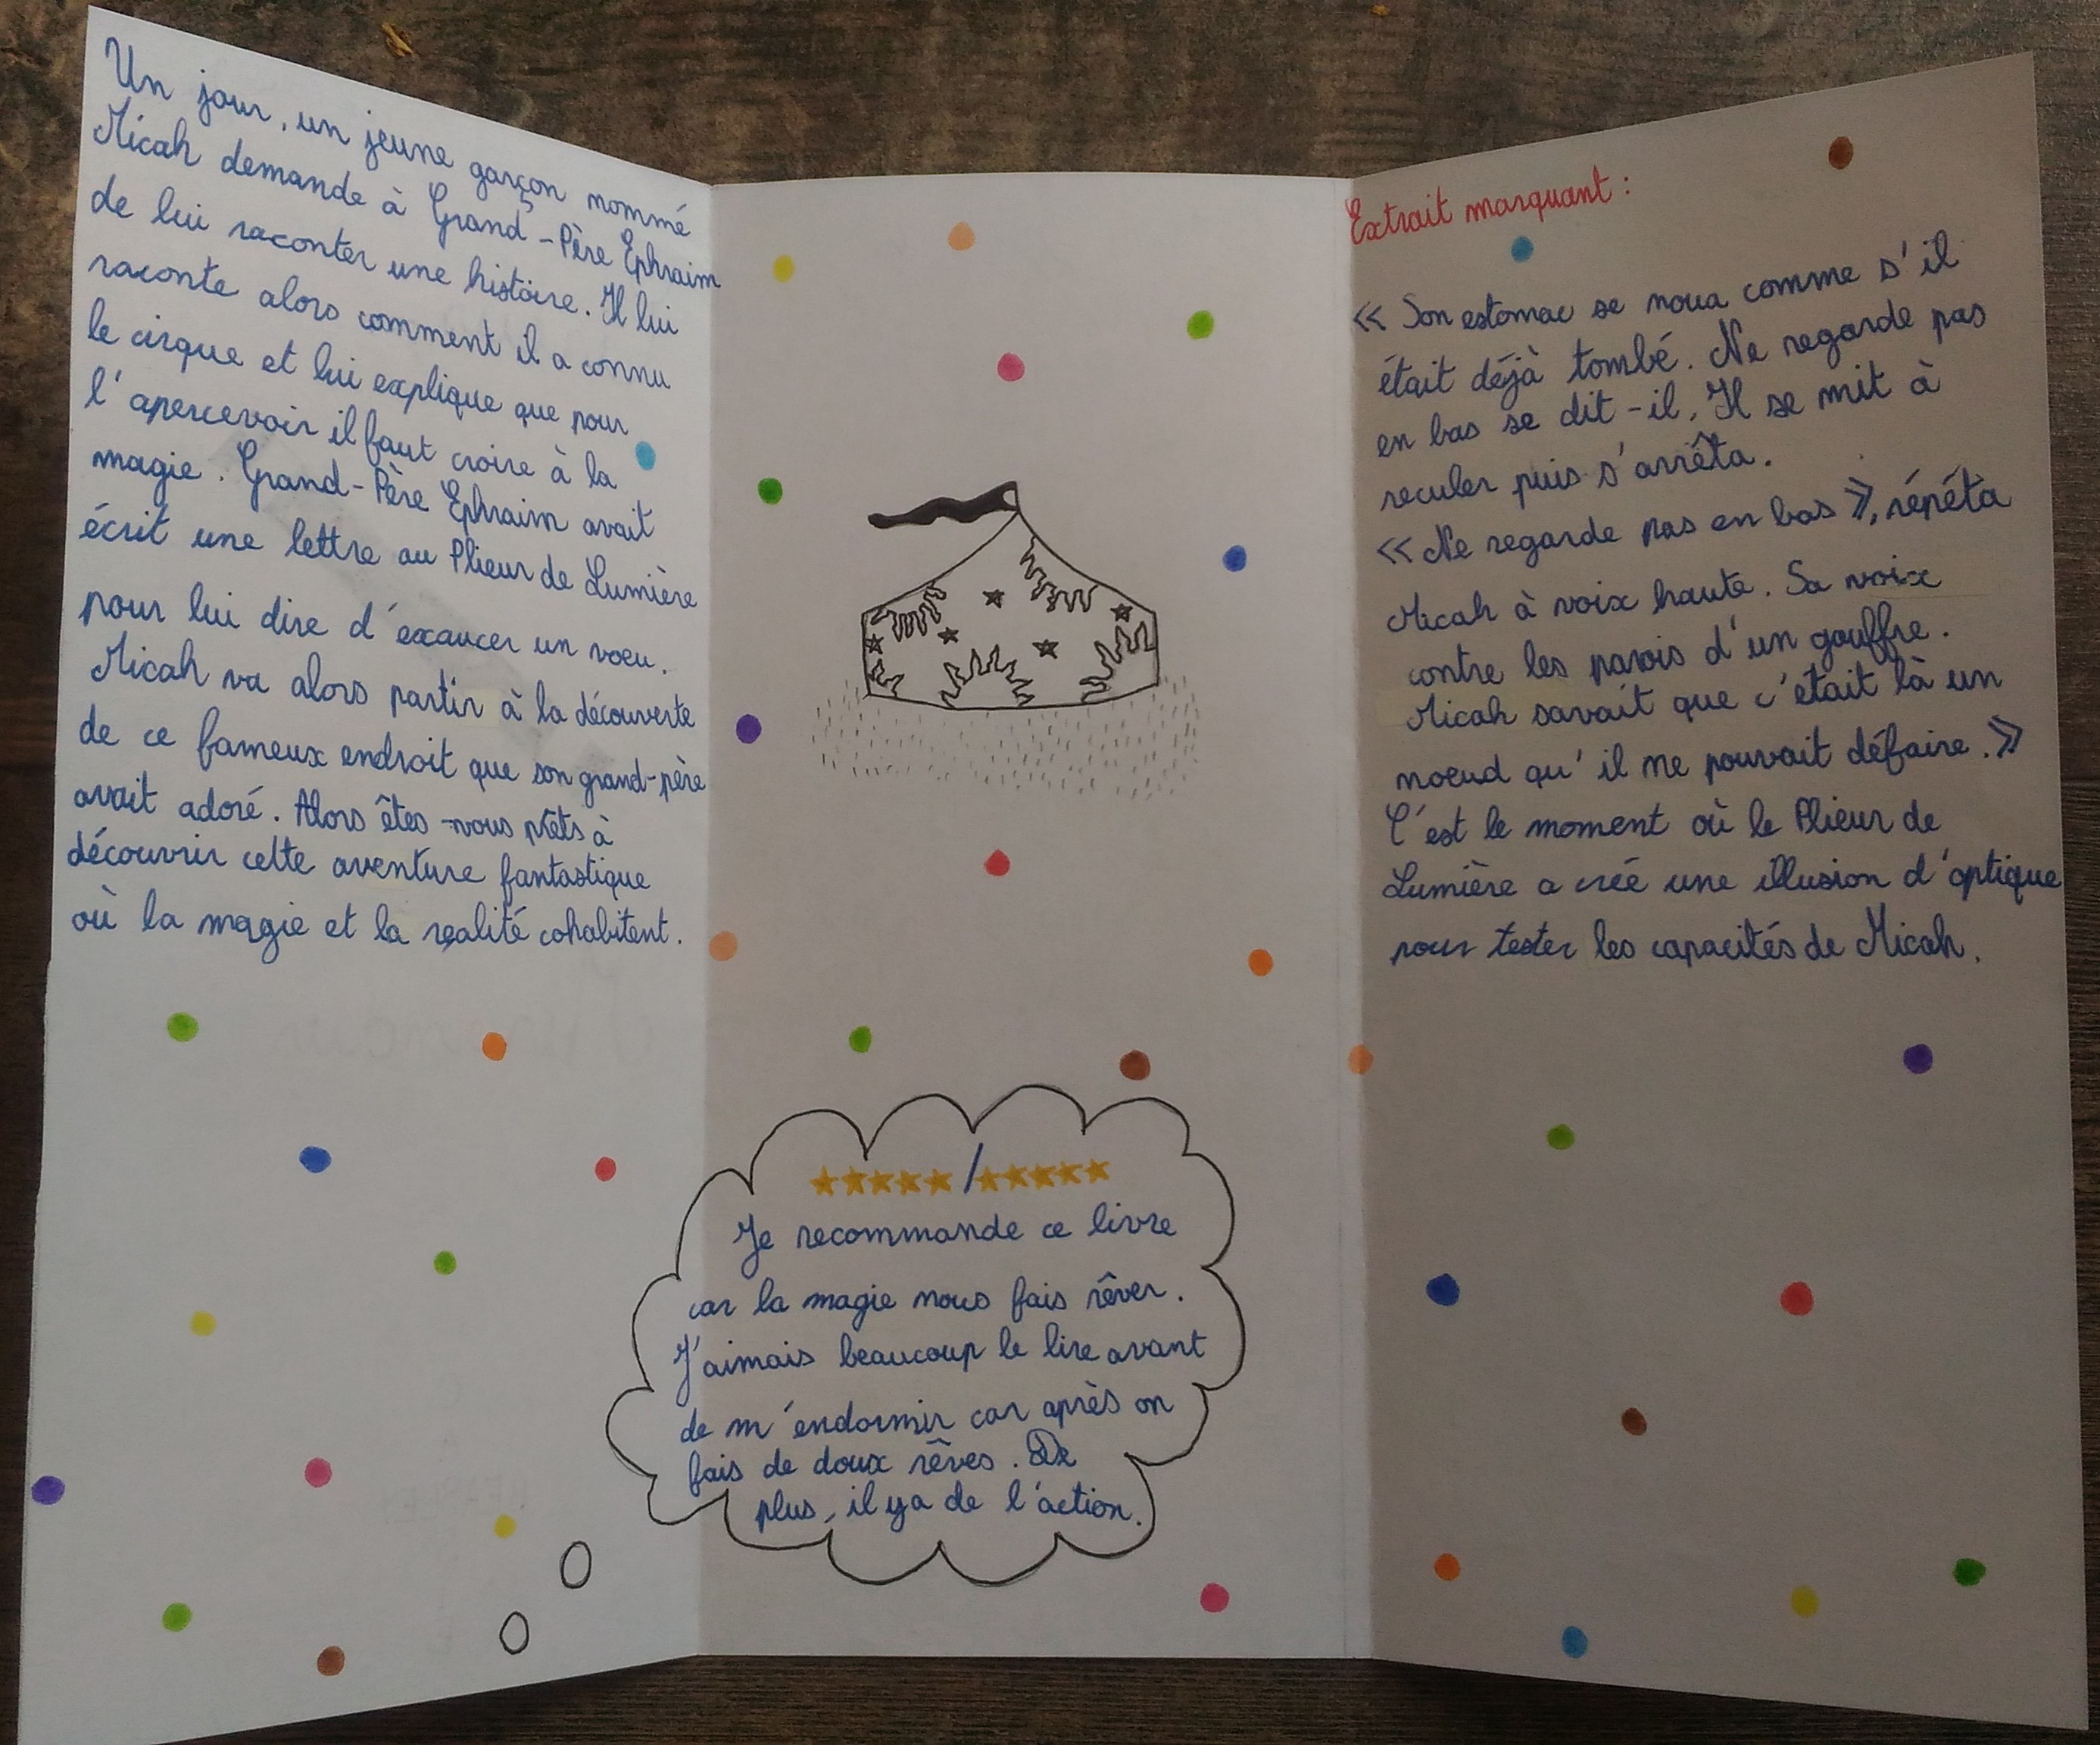 Un jour, un jeune garçon nommé
Micah demande à Grand-Père Ephraim
de lui raconter une histoire. Il lui
raconte alors comment il a connu
le cirque et lui explique que pour
l'apercevoir il faut croire à la
magie. Grand-Père Ephraim avait
écrit une lettre au Plieur de Lumière
pour lui dire d'exaucer un voeu.
Micah va alors partir à la découverte
de ce fameux endroit que son grand-père
avait adoré. Alors êtes-vous prêts à
découvrir cette aventure fantastique
où la magie et la réalité cohabitent.
★★★★★/★★★★★
Je recommande ce livre
car la magie nous fais rêver.
J'aimais beaucoup le lire avant
de m'endormir car après on
fais de doux rêves. De
plus, il y a de l'action.
Extrait marquant :
« Son estomac se noua comme s'il
était déjà tombé. Ne regarde pas
en bas se dit-il. Il se mit à
reculer puis s'arrêta.
« Ne regarde pas en bas », répéta
Micah à voix haute. Sa voix
contre les parois d'un gouffre.
Micah savait que c'était là un
noeud qu'il ne pouvait défaire. »
C'est le moment où le Plieur de
Lumière a créé une illusion d'optique
pour tester les capacités de Micah.